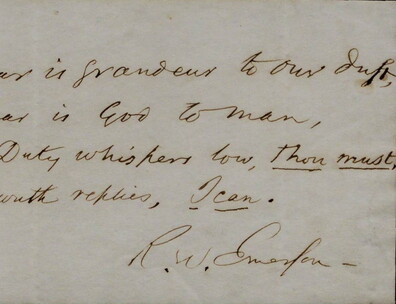 ar is grandeur to our dust,
ar is God to man,
Duty whispers low, thou must,
outh replies, I can.
R. W. Emerson –